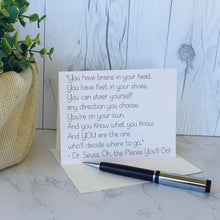 "You have brains in your head.
You have feet in your shoes.
You can steer yourself
any direction you choose.
You're on your own.
And you know what you know.
And YOU are the one
who'll decide where to go."
- Dr. Seuss, Oh, the Places You'll Go!